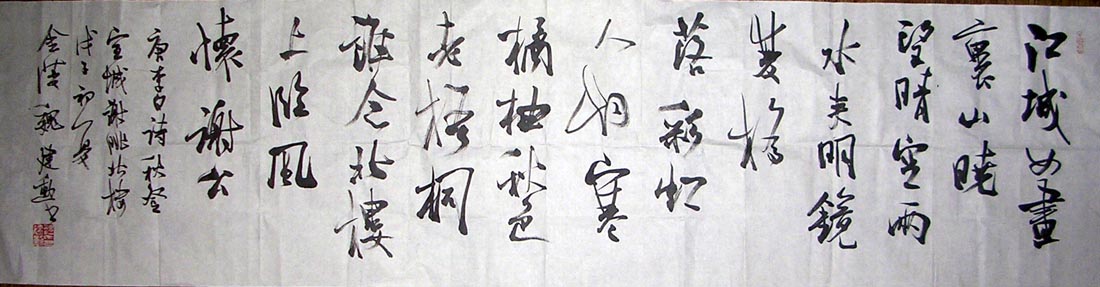 江城如畫
裏山曉
望晴空兩
水夾明鏡
雙橋
落彩虹
人烟寒
橘柚秋色
老梧桐
誰念北樓
上臨風
懷謝公
唐李白詩秋登
宣城謝朓北樓
戊子初夏
金陵魏書